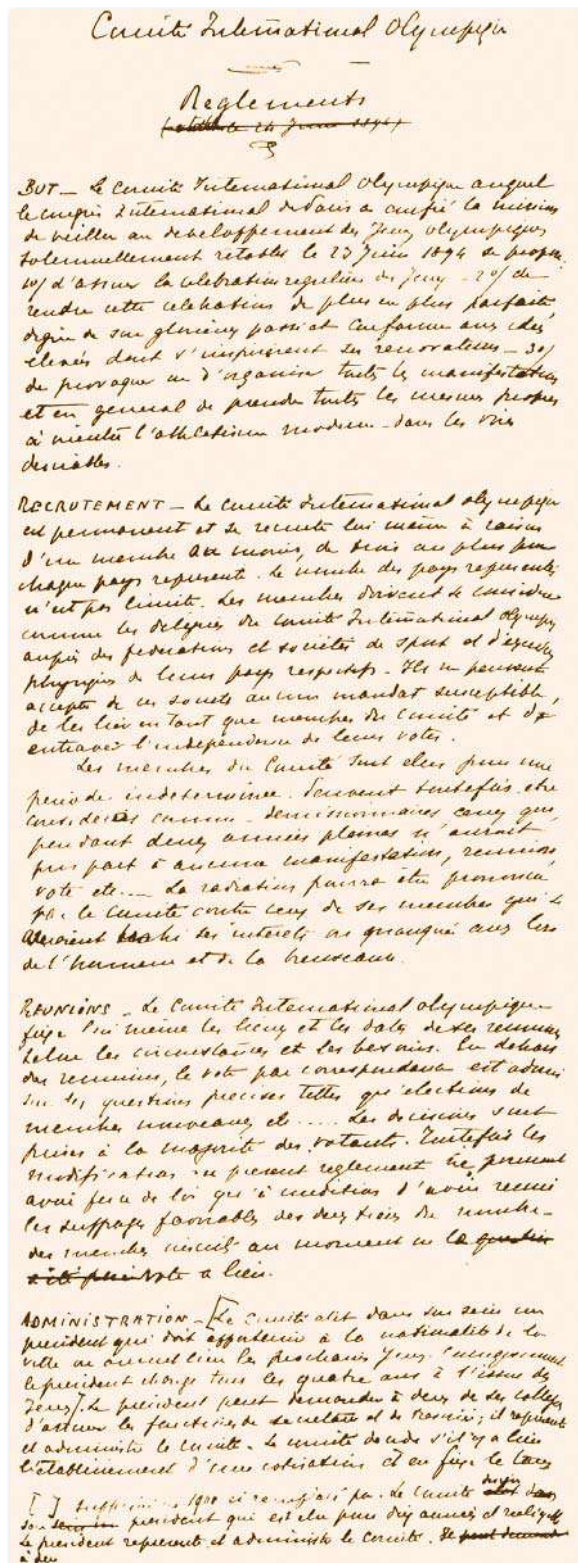 Comité International Olympique
Règlements
(votés le 24 Juin 1894)
BUT — Le Comité International Olympique auquel
le congrès International de Paris a confié la mission
de veiller au développement des Jeux olympiques
solennellement rétablis le 23 Juin 1894 se propose
1o/ d'assurer la célébration régulière des Jeux — 2o/ de
rendre cette célébration de plus en plus parfaite,
digne de son glorieux passé et conforme aux idées
élevées dont s'inspirèrent ses rénovateurs — 3o/
de provoquer ou d'organiser toutes les manifestations
et en général de prendre toutes les mesures propres
à orienter l'athlétisme moderne dans les voies
désirables.
RECRUTEMENT — Le Comité International olympique
est permanent et se recrute lui même à raison
d'un membre au moins, de trois au plus pour
chaque pays représenté. Le nombre des pays représentés
n'est pas limité. Les membres doivent se considérer
comme les délégués du Comité International Olympique
auprès des fédérations et sociétés de sport et d'exercices
physiques de leurs pays respectifs. Ils ne peuvent
accepter de ces sociétés aucun mandat susceptible,
de les lier en tant que membres du Comité et de
entraver l'indépendance de leurs votes.
Les membres du Comité sont élus pour une
période indéterminée. Peuvent toutefois être
considérés comme démissionnaires ceux qui,
pendant deux années pleines n'auront
pris part à aucune manifestation, réunion,
vote etc... La radiation pourra être prononcée
par le Comité contre ceux de ses membres qui
auraient trahi ses intérêts ou manqué aux lois
de l'honneur et de la bienséance.
RÉUNIONS — Le Comité International olympique
fixe lui même les lieux et les dates de ses réunions
selon les circonstances et les besoins. En dehors
des réunions, le vote par correspondance est admis
sur les questions précises telles qu'élections de
membres nouveaux etc..... Les décisions sont
prises à la majorité des votants. Toutefois les
modifications au présent règlement ne pourront
avoir force de loi qu'à condition d'avoir réuni
les suffrages favorables des deux tiers du nombre
des membres inscrits au moment où la question
a été prise vote a lieu.
ADMINISTRATION — [Le Comité élit dans son sein un
président qui doit appartenir à la nationalité de la
ville où auront lieu les prochains Jeux.
le président change tous les quatre ans à l'issue des
Jeux]. Le président peut demander à deux de ses collègues
d'assurer les fonctions de secrétaire et de trésorier; il représente
et administre le Comité. Le Comité décide s'il y a lieu
l'établissement d'une cotisation et en fixe le taux
[ ] supprimé en 1900 et remplacé par Le Comité
son sein un président qui est élu pour dix années et rééligible
Le président représente et administre le Comité. Il peut demander
à deux